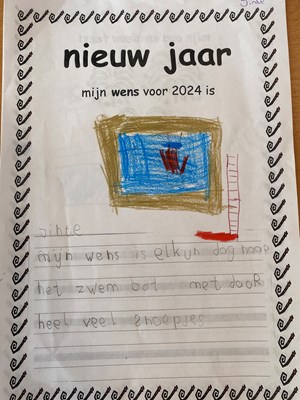 Jinte
nieuw jaar
mijn wens voor 2024 is
Jinte
mijn wens is elkun dag naar
het zwem bat met dook
heel veel snoepjes